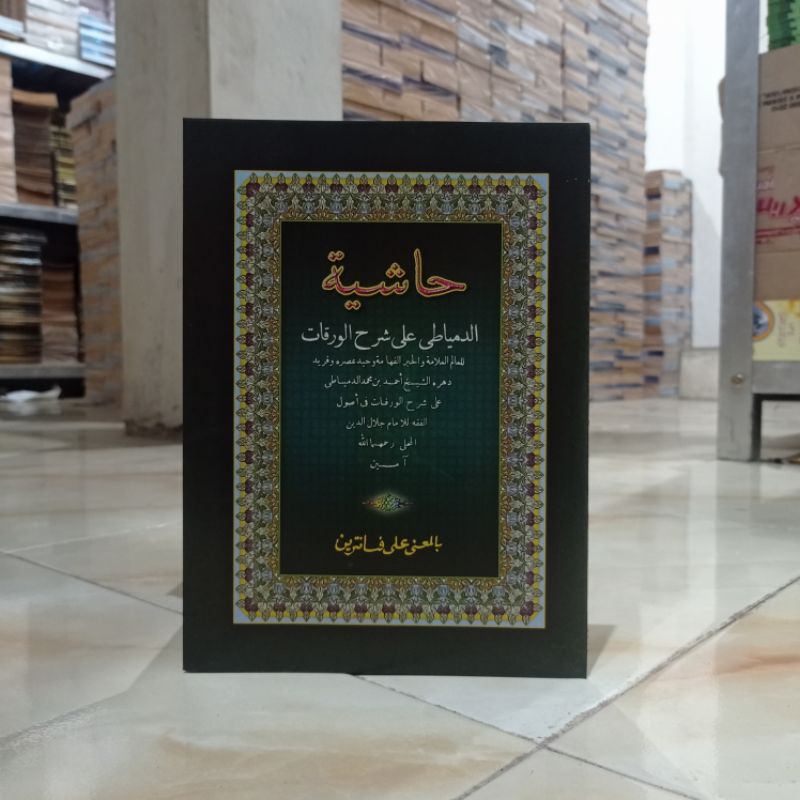 حاشية
الدمياطى على شرح الورقات
للعالم العلامة والحبر الفهامة وحيد عصره وفريد
دهره الشيخ أحمد بن محمد الدمياطى
على شرح الورقات فى أصول
الفقه للامام جلال الدين
المحلى رحمهما الله
آمين
بالمعنى على فسانترين